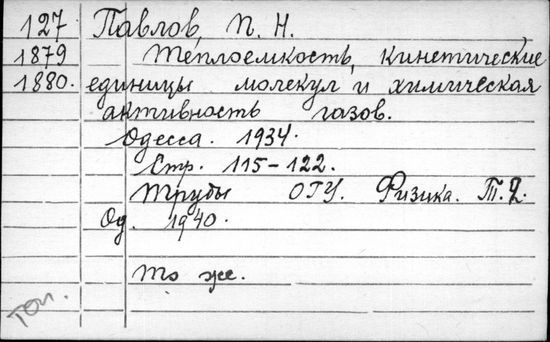 127 Павлов, П. Н.
1879 Теплоемкость, кинетические
1880. единицы молекул и химическая
активность газов.
Одесса. 1934.
Стр. 115-122.
Труды ОГУ. Физика. Т. 2.
Од. 1940.
То же.